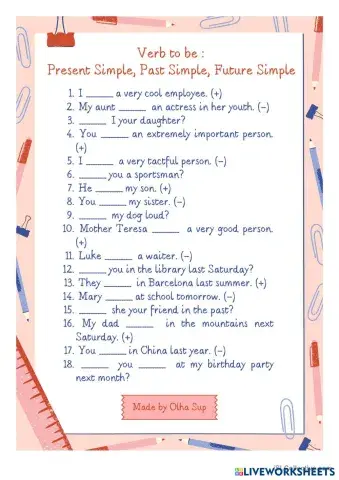 Verb to be :
Present Simple, Past Simple, Future Simple
1. I _____ a very cool employee. (+)
2. My aunt _____ an actress in her youth. (–)
3. _____ I your daughter?
4. You _____ an extremely important person.
(+)
5. I _____ a very tactful person. (–)
6. _____ you a sportsman?
7. He _____ my son. (+)
8. You _____ my sister. (–)
9. _____ my dog loud?
10. Mother Teresa _____ a very good person.
(+)
11. Luke _____ a waiter. (–)
12. _____ you in the library last Saturday?
13. They _____ in Barcelona last summer. (+)
14. Mary _____ at school tomorrow. (–)
15. _____ she your friend in the past?
16. My dad _____ in the mountains next
Saturday. (+)
17. You _____ in China last year. (–)
18. _____ you _____ at my birthday party
next month?
Made by Olha Sup
LIVEWORKSHEETS